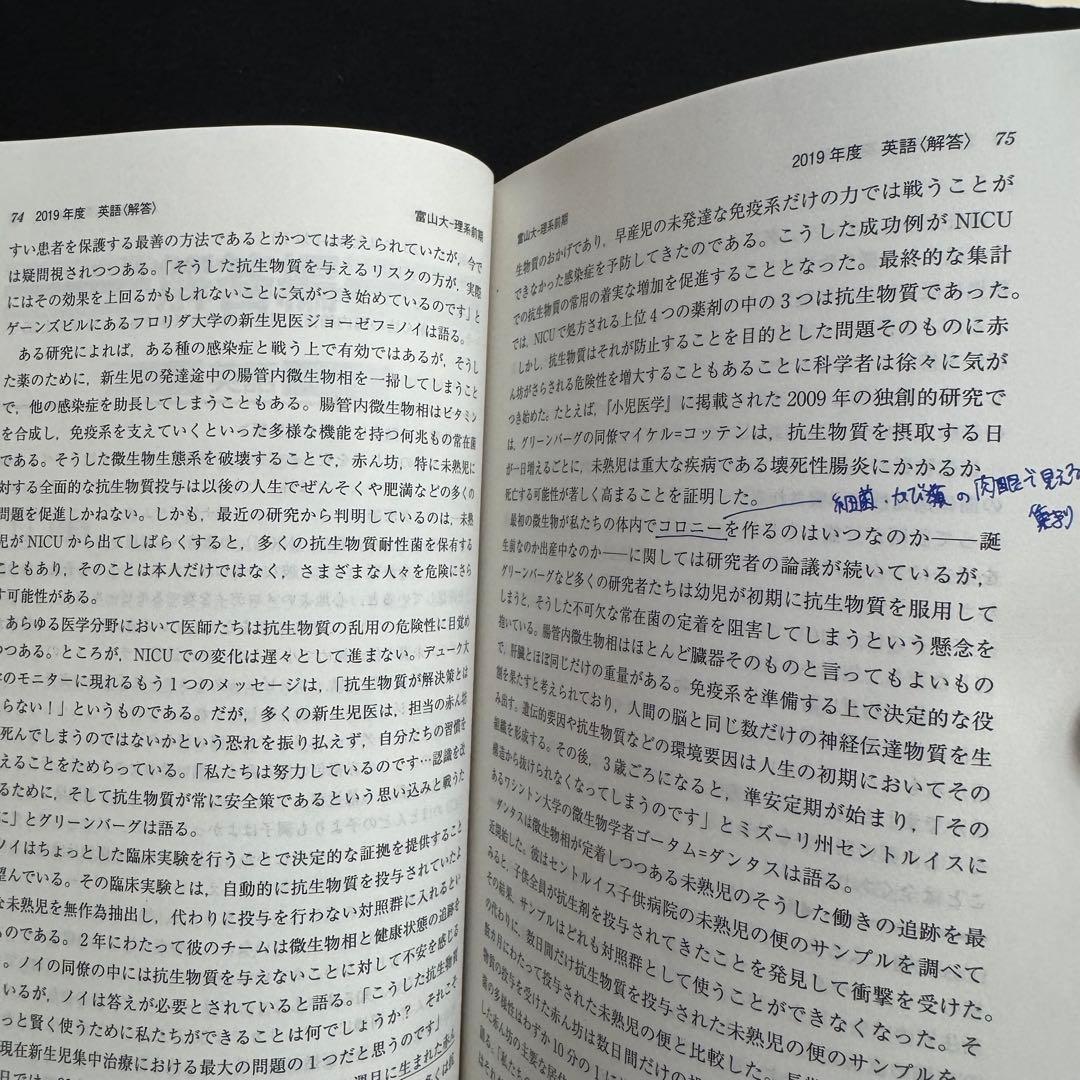 74 2019年度 英語〈解答〉 富山大-理系前期
すい患者を保護する最善の方法であるとかつては考えられていたが，今で
は疑問視されつつある。「そうした抗生物質を与えるリスクの方が，実際
にはその効果を上回るかもしれないことに気がつき始めているのです」と
ゲーンズビルにあるフロリダ大学の新生児医ジョーゼフ=ノイは語る。
ある研究によれば，ある種の感染症と戦う上で有効ではあるが，そうし
た薬のために，新生児の発達途中の腸管内微生物相を一掃してしまうこと
で，他の感染症を助長してしまうこともある。腸管内微生物相はビタミン
を合成し，免疫系を支えていくといった多様な機能を持つ何兆もの常在菌
である。そうした微生物生態系を破壊することで，赤ん坊，特に未熟児に
対する全面的な抗生物質投与は以後の人生でぜんそくや肥満などの多くの
問題を促進しかねない。しかも，最近の研究から判明しているのは，未熟
児がNICUから出てしばらくすると，多くの抗生物質耐性菌を保有する
こともあり，そのことは本人だけではなく，さまざまな人々を危険にさら
す可能性がある。
あらゆる医学分野において医師たちは抗生物質の乱用の危険性に目覚め
つつある。ところが，NICUでの変化は遅々として進まない。デューク大
のモニターに現れるもう1つのメッセージは，「抗生物質が解決策とは
らない！」というものである。だが，多くの新生児医は，担当の赤ん坊
死んでしまうのではないかという恐れを振り払えず，自分たちの習慣を
えることをためらっている。「私たちは努力しているのです…認識を改
るために，そして抗生物質が常に安全策であるという思い込みと戦うた
に」とグリーンバーグは語る。
ノイはちょっとした臨床実験を行うことで決定的な証拠を提供すること
望んでいる。その臨床実験とは，自動的に抗生物質を投与されていたよ
な未熟児を無作為抽出し，代わりに投与を行わない対照群に入れるとい
ものである。2年にわたって彼のチームは微生物相と健康状態の追跡を
。ノイの同僚の中には抗生物質を与えないことに対して不安を感じる
いるが，ノイは答えが必要とされていると語る。「こうした抗生物質
っと賢く使うために私たちができることは何でしょうか？ それこそ
現在新生児集中治療における最大の問題の1つだと思うのです」
週目に生まれた赤ん
富山大-理系前期 2019年度 英語〈解答〉 75
生物質のおかげであり，早産児の未発達な免疫系だけの力では戦うことが
できなかった感染症を予防してきたのである。こうした成功例がNICU
での抗生物質の常用の着実な増加を促進することとなった。最終的な集計
では，NICUで処方される上位4つの薬剤の中の3つは抗生物質であった。
しかし，抗生物質はそれが防止することを目的とした問題そのものに赤
ん坊がさらされる危険性を増大することもあることに科学者は徐々に気が
つき始めた。たとえば，『小児医学』に掲載された2009年の独創的研究で
は，グリーンバーグの同僚マイケル=コッテンは，抗生物質を摂取する日
が一日増えるごとに，未熟児は重大な疾病である壊死性腸炎にかかるか，
死亡する可能性が著しく高まることを証明した。
細菌・カビ類の肉眼で見える
集団
最初の微生物が私たちの体内でコロニーを作るのはいつなのか――誕
生前なのか出産中なのか――に関しては研究者の論議が続いているが，
グリーンバーグなど多くの研究者たちは幼児が初期に抗生物質を服用して
しまうと，そうした不可欠な常在菌の定着を阻害してしまうという懸念を
抱いている。腸管内微生物相はほとんど臓器そのものと言ってもよいもの
で，肝臓とほぼ同じだけの重量がある。免疫系を準備する上で決定的な役
割を果たすと考えられており，人間の脳と同じ数だけの神経伝達物質を生
み出す。遺伝的要因や抗生物質などの環境要因は人生の初期においてその
組織を形成する。その後，3歳ごろになると，準安定期が始まり，「その
構造から抜けられなくなってしまうのです」とミズーリ州セントルイスに
あるワシントン大学の微生物学者ゴータム=ダンタスは語る。
ダンタスは微生物相が定着しつつある未熟児のそうした働きの追跡を最
近開始した。彼はセントルイス子供病院の未熟児の便のサンプルを調べて
みると，子供全員が抗生剤を投与されてきたことを発見して衝撃を受けた。
その結果，サンプルはどれも対照群として使うことができなくなった。そ
の代わりに，数日間だけ抗生物質を投与された未熟児の便のサンプルを
数か月にわたって投与された未熟児の便と比較した。
物質の投与を受けた赤ん坊は数日間だけの
菌の多様性はわずか10分の1に
した赤ん坊の主要な居住